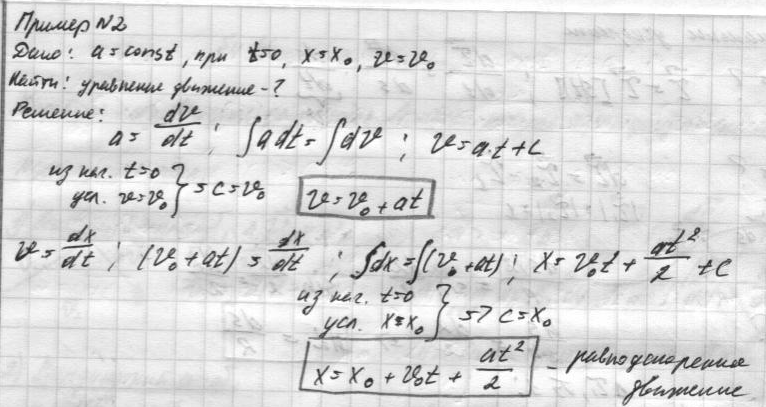 Пример №2
Дано: a = const, при t=0, x=x₀, v=v₀
Найти: уравнение движение - ?
Решение:
a = dv/dt ; ∫a dt = ∫dv ; v = a·t + c
из нач. t=0
усл. v=v₀ } = c = v₀ v = v₀ + at
v = dx/dt ; (v₀ + at) = dx/dt ; ∫dx = ∫(v₀ + at) ; x = v₀t + at²/2 + c
из нач. t=0
усл. x=x₀ } => c = x₀
x = x₀ + v₀t + at²/2 - равноускоренное
движение